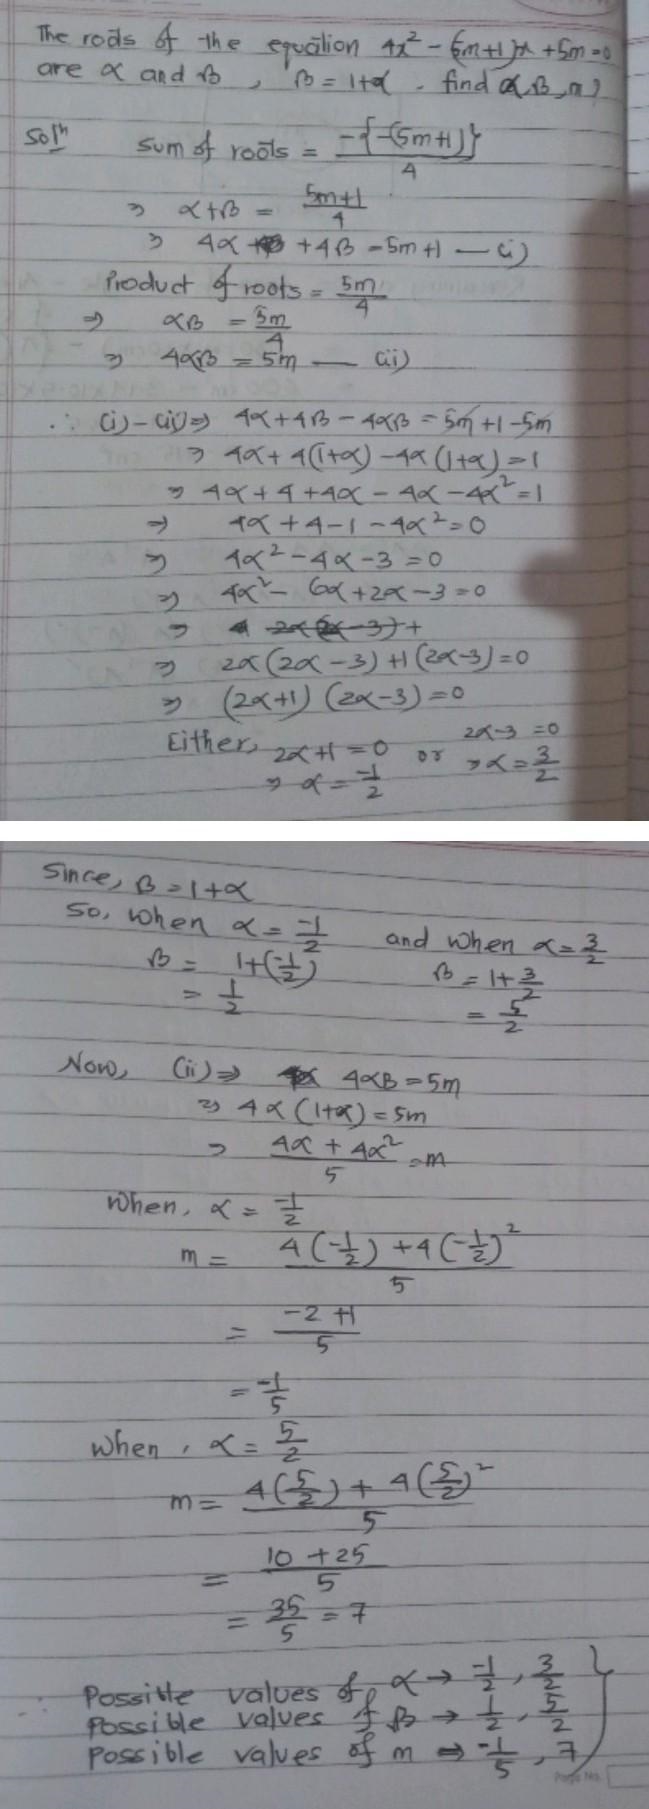 The roots of the equation 4x² - (5m+1)x + 5m = 0
are α and β, β = 1+α. find α, β, m?
Solⁿ Sum of roots = -{-(5m+1)}/4
⇒ α+β = 5m+1/4
⇒ 4α + 4β = 5m+1 — (i)
Product of roots = 5m/4
⇒ αβ = 5m/4
⇒ 4αβ = 5m — (ii)
∴ (i) - (ii) ⇒ 4α + 4β - 4αβ = 5m + 1 - 5m
⇒ 4α + 4(1+α) - 4α(1+α) = 1
⇒ 4α + 4 + 4α - 4α - 4α² = 1
⇒ 4α + 4 - 1 - 4α² = 0
⇒ 4α² - 4α - 3 = 0
⇒ 4α² - 6α + 2α - 3 = 0
⇒ 2α(2α-3) +
⇒ 2α(2α-3) + 1(2α-3) = 0
⇒ (2α+1) (2α-3) = 0
Either, 2α+1 = 0 or 2α-3 = 0
⇒ α = -1/2 ⇒ α = 3/2
Since, β = 1+α
So, when α = -1/2 and when α = 3/2
β = 1+(-1/2) β = 1+3/2
= 1/2 = 5/2
Now, (ii) ⇒ 4αβ = 5m
⇒ 4α(1+α) = 5m
⇒ 4α + 4α²/5 = m
When, α = -1/2
m = 4(-1/2) + 4(-1/2)²/5
= -2+1/5
= -1/5
When, α = 5/2
m = 4(5/2) + 4(5/2)²/5
= 10+25/5
= 35/5 = 7
∴ Possible values of α → -1/2, 3/2
Possible values of β → 1/2, 5/2
Possible values of m ⇒ -1/5, 7
Page No.